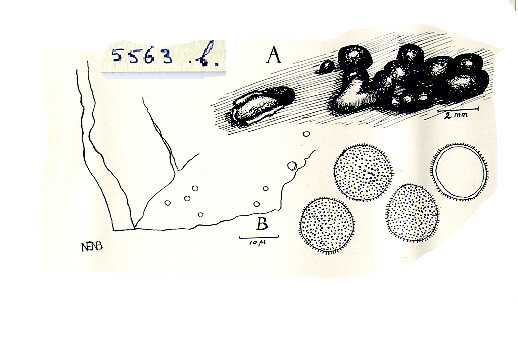 5563 .b.
A
2 mm
B
10 µ
NENB